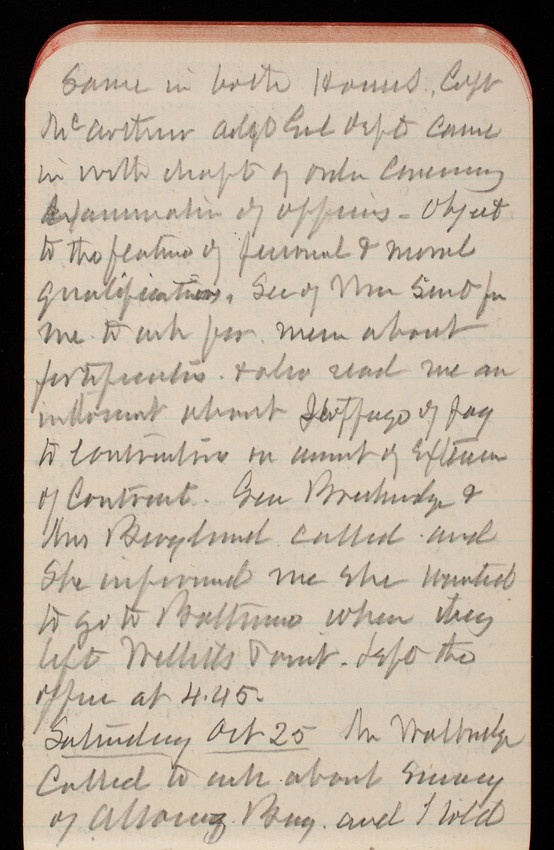 Same in both Houses, Capt
McArthur Adgt Genl Dept came
in with draft of order concerning
Examination of officers - Object
to the feature of personal & moral
qualifications. Sec of War Sent for
me to ask for mem about
fortification & also read me an
about Stoppage of pay
to Contractors on account of Extension
of Contract. Gen Breckridge &
Mrs Bergland called and
She informed me she wanted
to go to Baltimore when they
left Willetts Point. Left the
office at 4.45.
Saturday Oct 25 Mr Walbridge
Called to ask about Survey
of Bay. and I told